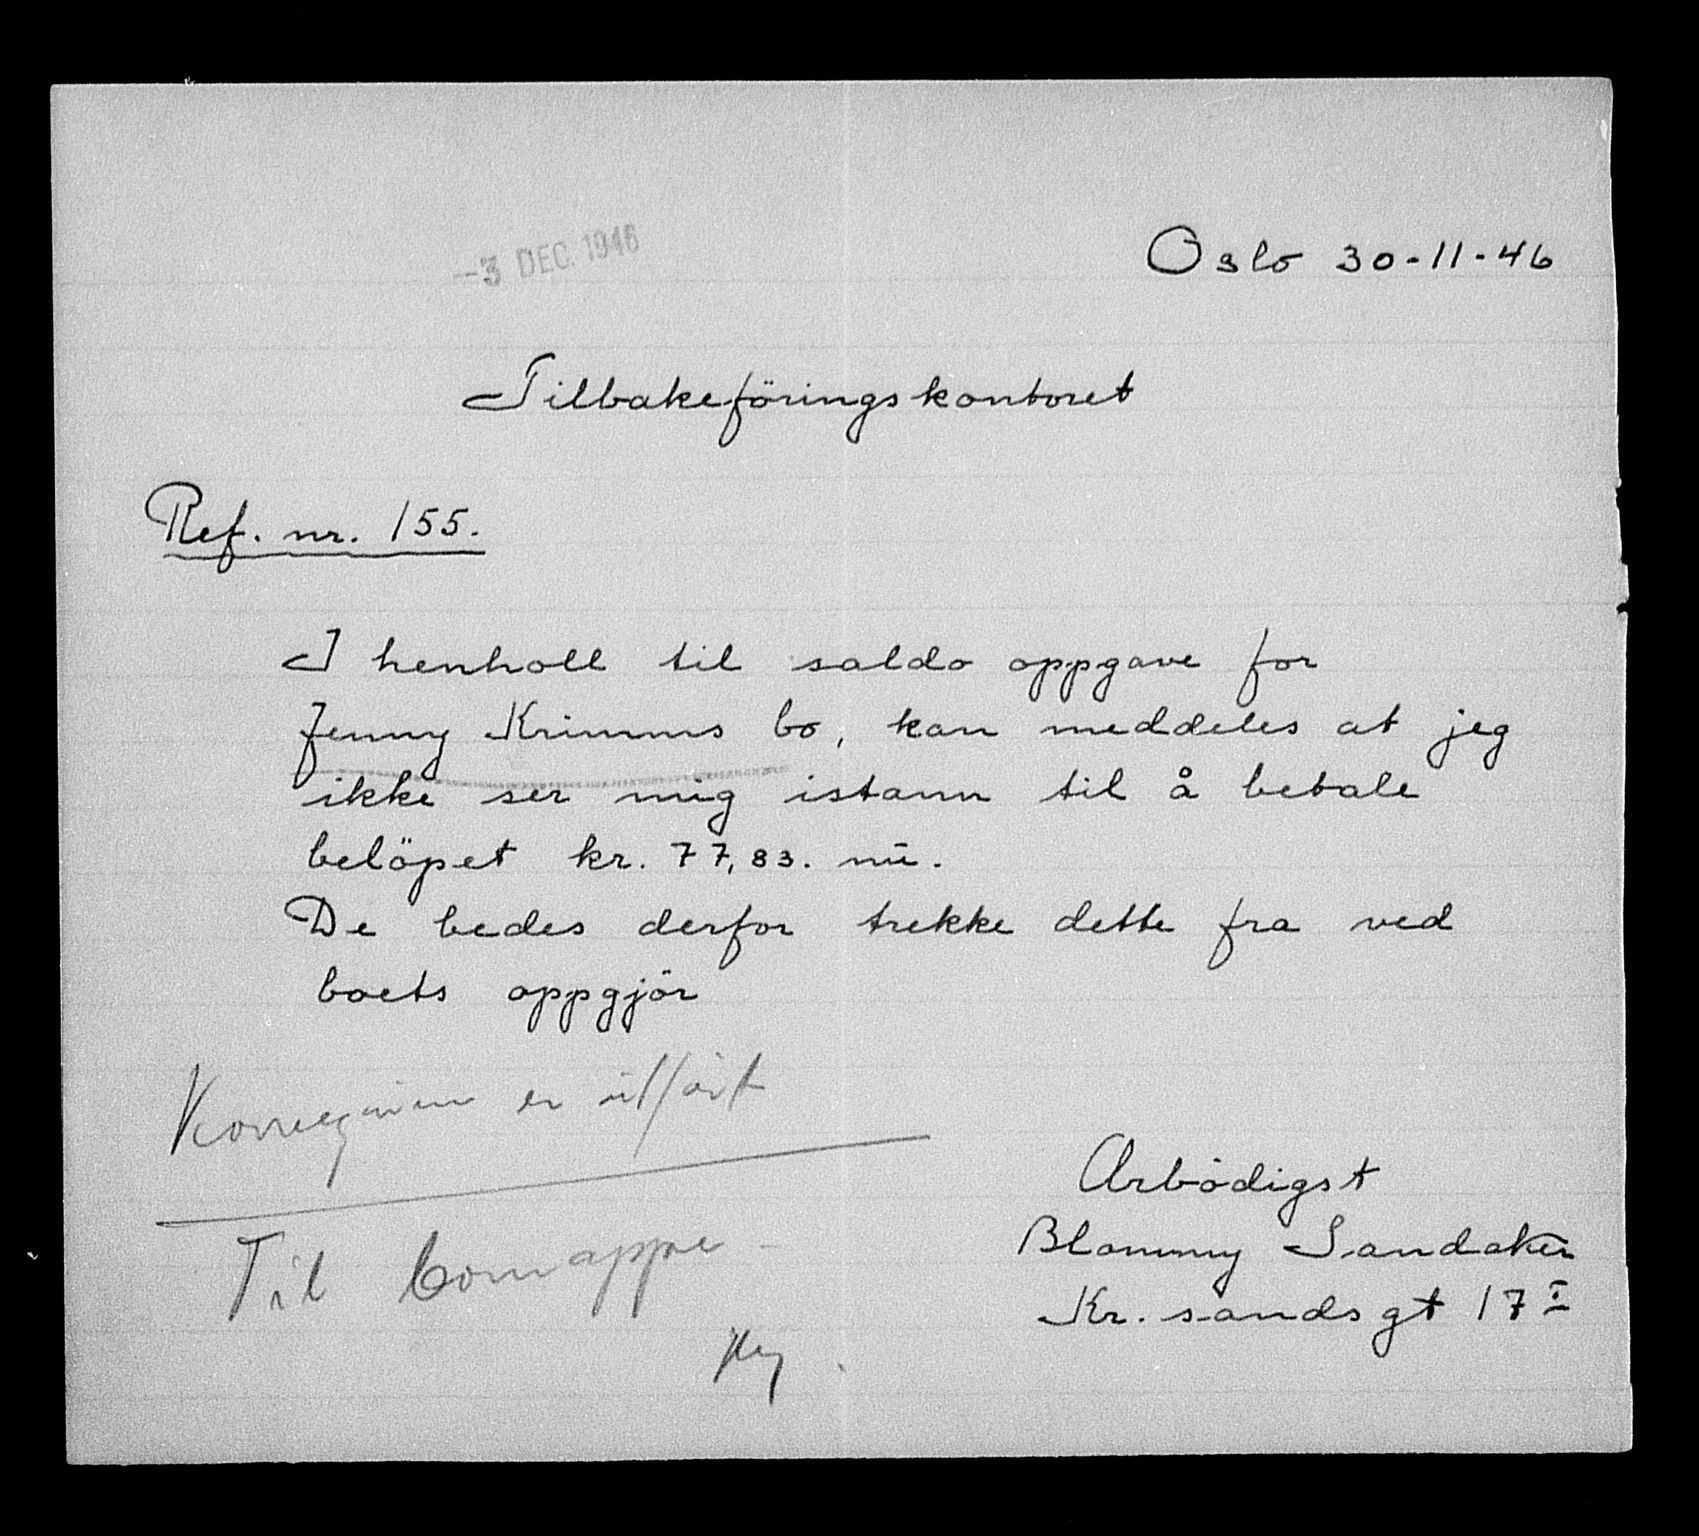 Oslo 30-11-46
-3 DEC. 1946
Tilbakeföringskontoret
Ref. nr. 155.
I henholl til saldo oppgave for
Jenny Krimms bo, kan meddeles at jeg
ikke ser mig istann til å betale
belöpet kr. 77,83. nu.
De bedes derfor trekke dette fra ved
boets oppgjör
er utført
Til bomappe
Arbödigst
Blommy Sandaker
Kr.sandsgt 17 I